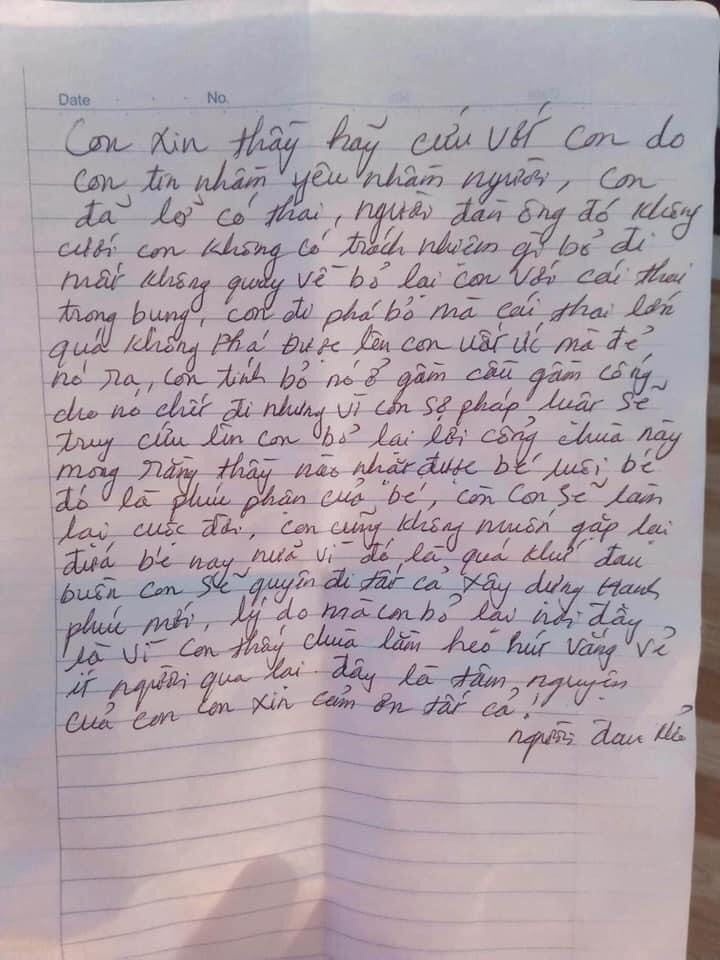 Date No.
Con xin thầy hãy cứu với con do
con tin nhầm yêu nhầm người, con
đã lỡ có thai, người đàn ông đó không
cưới con không có trách nhiệm gì bỏ đi
mất không quay về bỏ lại con với cái thai
trong bụng, con đi phá bỏ mà cái thai lớn
quá không phá được lên con uất ức mà đẻ
nó ra, con tính bỏ nó ở gầm cầu gầm cống
cho nó chết đi nhưng vì con sợ pháp luật sẽ
truy cứu lên con bỏ lại lời cổng chùa này
mong rằng thầy nào nhặt được bé nuôi bé
đó là phúc phận của "bé", còn con sẽ làm
lại cuộc đời, con cũng không muốn gặp lại
đứa bé nay nữa vì đó là quá khứ đau
buồn con sẽ quyên đi tất cả xây dựng hanh
phúc mới, lý do mà con bỏ lại nơi đây
là vì con thấy chùa lằm héo hút vắng vẻ
ít người qua lại đây là tâm nguyện
của con con xin cảm ơn tất cả!
người đau khổ